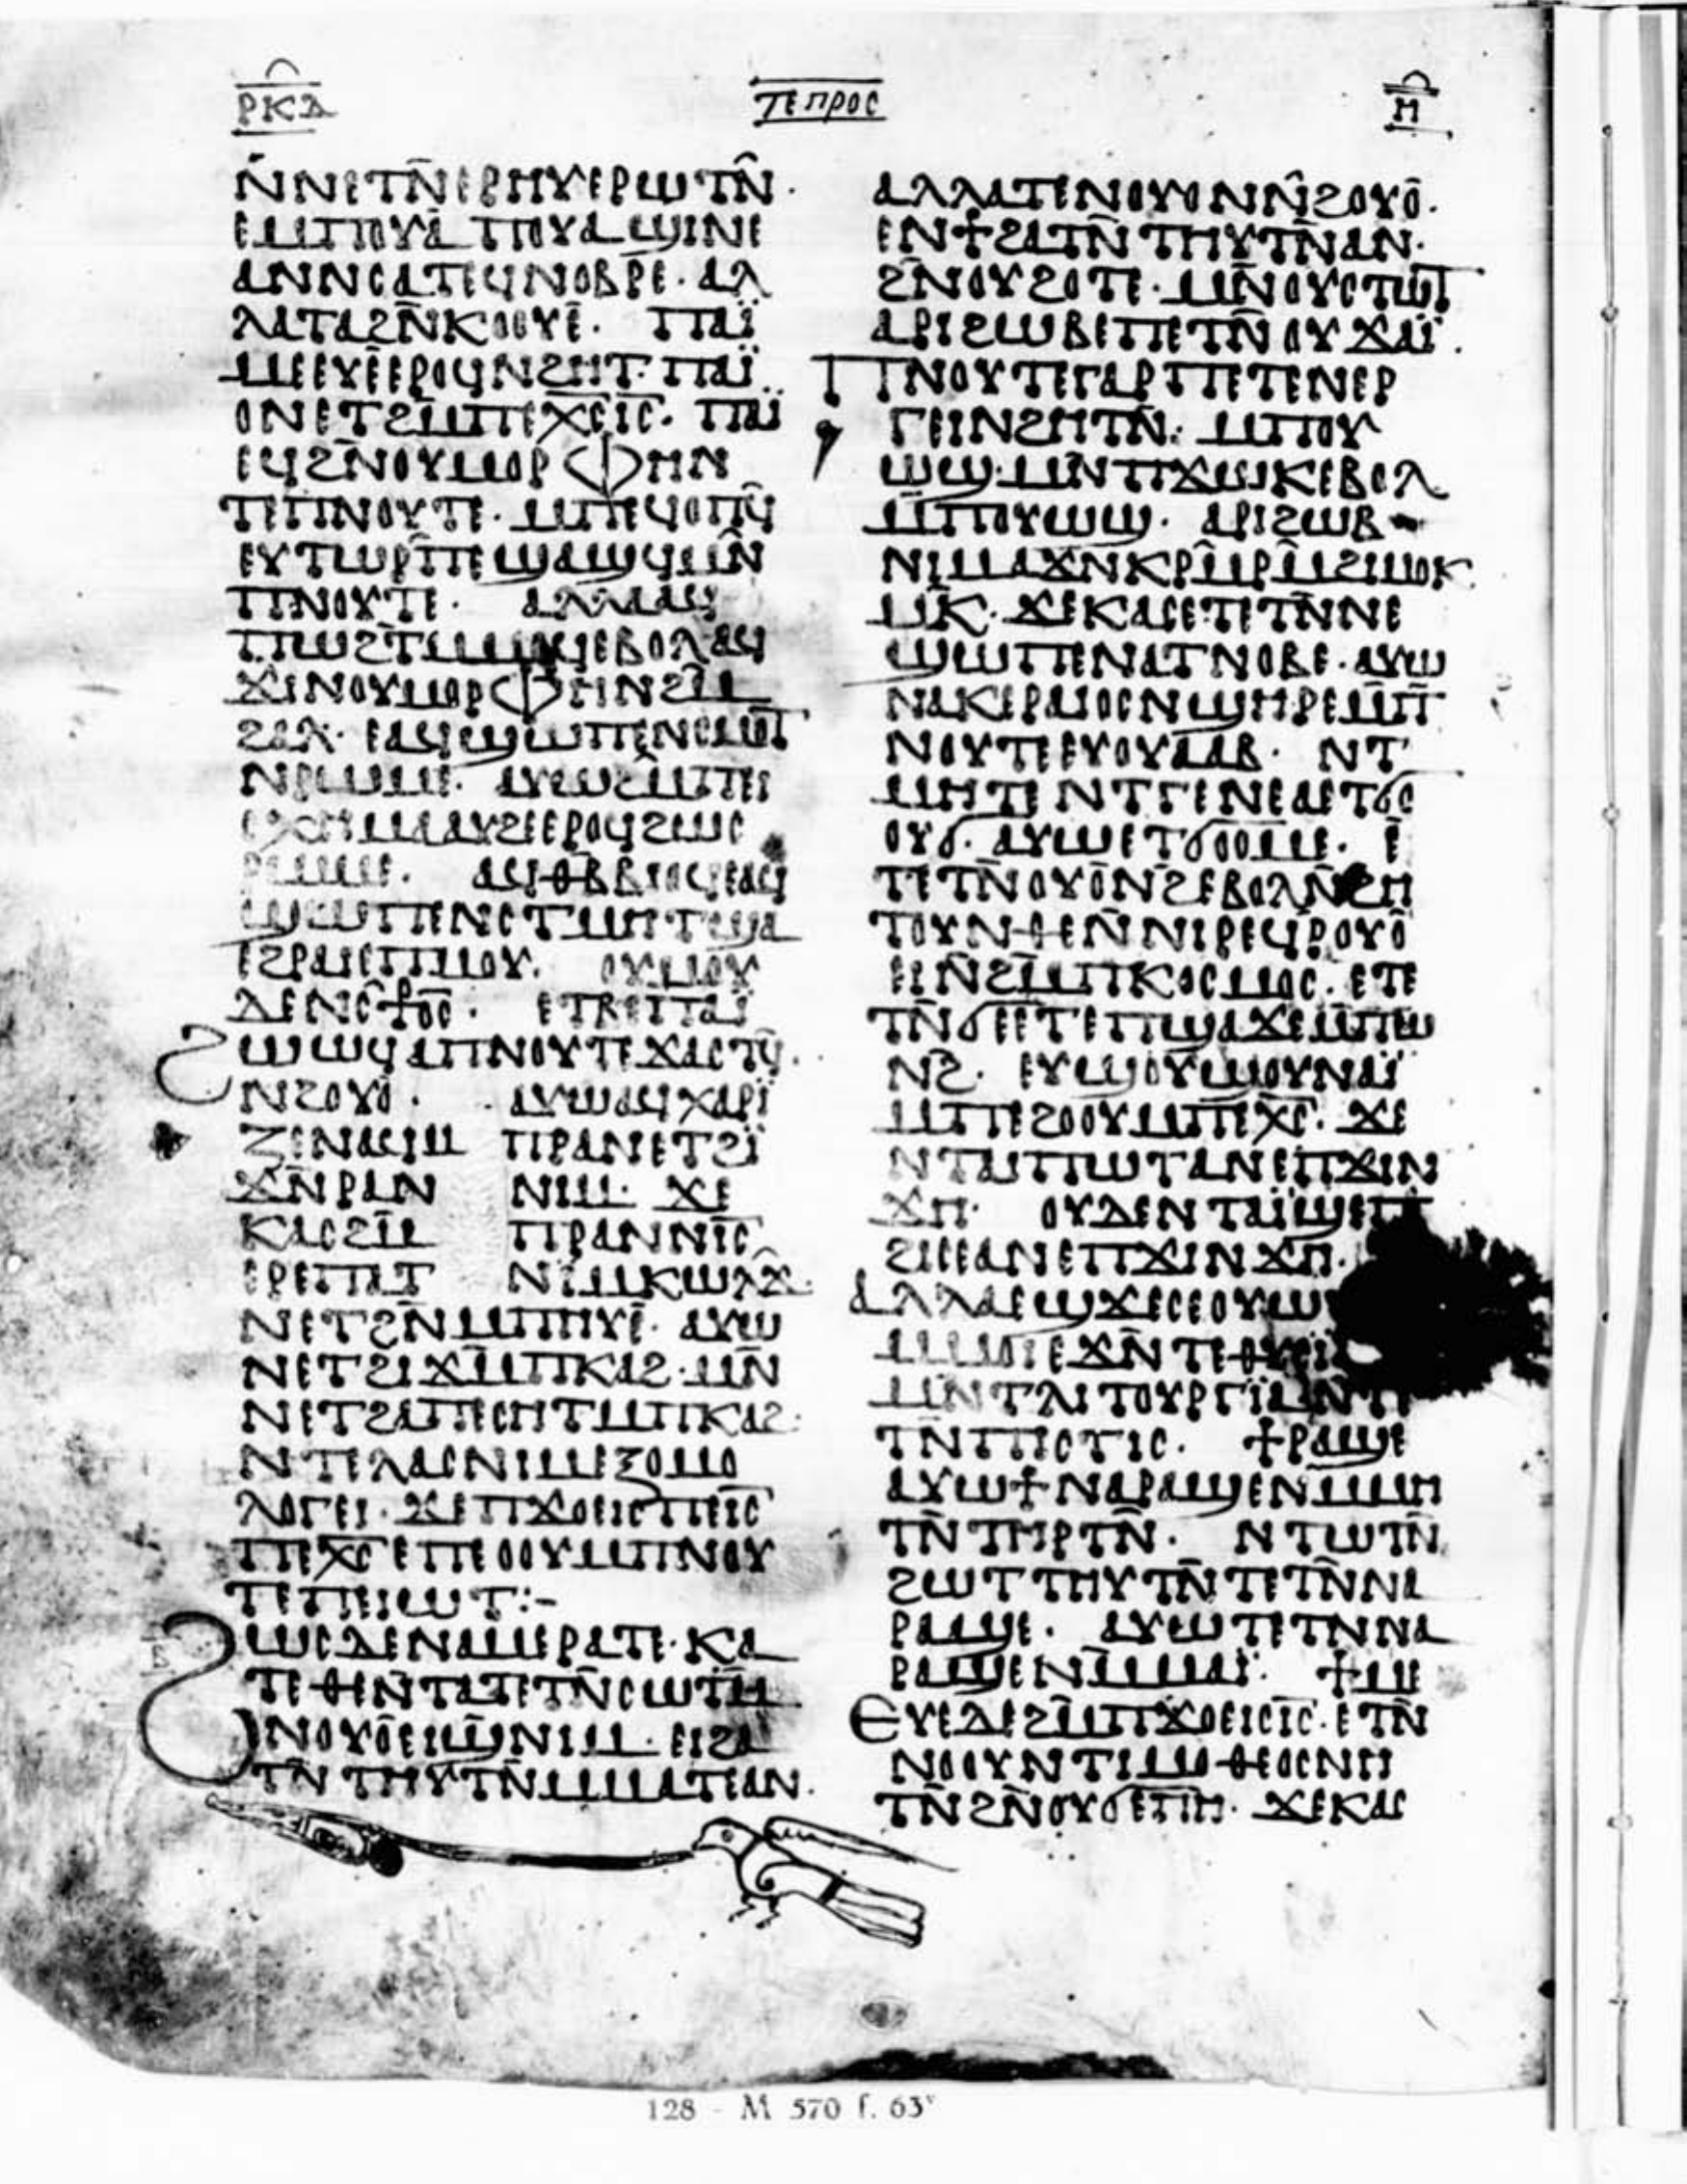 ⲣⲕⲇ ⲧⲉⲡⲣⲟⲥ ⲙ
ⲛ̄ⲛⲉⲧⲛ̄ⲉⲣⲏⲩⲉⲣⲱⲧⲛ̄·
ⲉⲙⲡⲟⲩⲁ ⲡⲟⲩⲁϣⲓⲛⲉ
ⲁⲛⲛⲥⲁⲧⲉϥⲛⲟⲃⲣⲉ· ⲁⲗ
ⲗⲁⲧⲁϩⲛ̄ⲕⲟⲟⲩⲉ̄· ⲡⲁⲓ̈
ⲙⲉⲉⲩⲉ̄ⲉⲣⲟϥⲛϩⲏⲧ· ⲡⲁⲓ̈
ⲟⲛⲉⲧϩⲙ̄ⲡⲉⲭ̄ⲥ̄ⲓ̄ⲥ̄· ⲡⲁⲓ̈
ⲉϥϩⲛ̄ⲟⲩⲙⲟⲣⲫⲏⲛ
ⲧⲉⲡⲛⲟⲩⲧⲉ· ⲙ̄ⲡⲉϥⲟⲡϥ̄
ⲉⲩⲧⲱⲣⲡ̄ⲡⲉϣⲁϣϥⲙⲛ̄
ⲡⲛⲟⲩⲧⲉ· ⲁⲗⲗⲁⲁϥ
ⲡⲱϩⲧⲙⲙⲟϥⲉⲃⲟⲗⲁϥ
ϫⲓⲛⲟⲩⲙⲟⲣⲫⲏⲛϩⲙ̄
ϩⲁⲗ· ⲉⲁϥϣⲱⲡⲉⲛⲥⲙⲟⲧ
ⲛⲣⲱⲙⲉ· ⲁⲩⲱϩⲙ̄ⲡⲉⲓ
ⲥⲭⲏⲙⲁⲁⲩϩⲉⲉⲣⲟϥϩⲱⲥ
ⲣⲱⲙⲉ· ⲁϥⲑⲃ̄ⲃⲓⲟϥⲉⲁϥ
ϣⲱⲡⲉⲛⲥⲧⲙⲏⲧϣⲁ
ⲉϩⲣⲁⲓⲉⲡⲙⲟⲩ· ⲟⲩⲙⲟⲩ
ⲇⲉⲛⲥ⳨ⲟⲥ̄· ⲉⲧⲃⲉⲡⲁⲓ̈
ϩⲱⲱϥⲁⲡⲛⲟⲩⲧⲉϫⲁⲥⲧϥ̄·
ⲛϩⲟⲩⲟ· ⲁⲩⲱⲁϥⲭⲁⲣⲓ̈
ⲍⲉⲛⲁϥⲙ ⲡⲣⲁⲛⲉⲧϩⲓ̈
ϫⲛ̄ⲣⲁⲛ ⲛⲓⲙ· ϫⲉ
ⲕⲁⲥϩⲙ̄ ⲡⲣⲁⲛⲛⲓ̄ⲥ̄
ⲉⲣⲉⲡⲁⲧ ⲛⲓⲙⲕⲱⲗϫ·
ⲛⲉⲧϩⲛ̄ⲙⲡⲏⲩⲉ̄· ⲁⲩⲱ
ⲛⲉⲧϩⲓϫⲙ̄ⲡⲕⲁϩ· ⲙⲛ̄
ⲛⲉⲧϩⲁⲡⲉⲥⲏⲧⲙ̄ⲡⲕⲁϩ·
ⲛⲧⲉⲗⲁⲥⲛⲓⲙⲉⲝⲟⲙⲟ
ⲗⲟⲅⲉⲓ· ϫⲉⲡϫⲟⲉⲓⲥⲡⲉⲓ̄ⲥ̄
ⲡⲉⲭ̄ⲥ̄ⲉⲡⲉⲟⲟⲩⲙⲡⲛⲟⲩ
ⲧⲉⲡⲉⲓⲱⲧ:-
ϩⲱⲥⲇⲉⲛⲁⲙⲉⲣⲁⲧⲉ· ⲕⲁ
ⲧⲁⲑⲉⲛ̄ⲧⲁⲧⲉⲧⲛ̄ⲥⲱⲧⲙ̄
ⲛⲟⲩⲟⲉⲓϣⲛⲓⲙ· ⲉⲓϩⲁ
ⲧⲛ̄ ⲧⲏⲩⲧⲛ̄ⲙⲙⲁⲧⲉⲁⲛ·
ⲁⲗⲗⲁⲧⲉⲛⲟⲩⲟⲛⲛ̄ϩⲟⲩⲟ̄·
ⲉⲛϯϩⲁⲧⲛ̄ ⲧⲏⲩⲧⲛ̄ⲁⲛ·
ϩⲛ̄ⲟⲩϩⲟⲧⲉ· ⲙⲛ̄ⲟⲩⲥⲧⲱⲧ
ⲁⲣⲓϩⲱⲃⲉⲡⲉⲧⲛ̄ⲟⲩϫⲁⲓ̈·
ⲡⲛⲟⲩⲧⲉⲅⲁⲣⲡⲉⲧⲉⲛⲉⲣ
ⲅⲉⲓⲛϩⲏⲧⲛ̄· ⲙⲡⲟⲩ
ⲱϣ· ⲙⲛ̄ⲡϫⲱⲕⲉⲃⲟⲗ
ⲙ̄ⲡⲟⲩⲱϣ· ⲁⲣⲓϩⲱⲃ
ⲛⲓⲙⲁϫⲛⲕⲣⲙ̄ⲣⲙ̄ϩⲓⲙⲟⲕ
ⲙⲕ̄· ϫⲉⲕⲁⲥⲉⲧⲉⲧⲛ̄ⲛⲉ
ϣⲱⲡⲉⲛⲁⲧⲛⲟⲃⲉ· ⲁⲩⲱ
ⲛⲁⲕⲉⲣⲁⲓⲟⲥⲛϣⲏⲣⲉⲙ̄ⲡ̄
ⲛⲟⲩⲧⲉⲉⲩⲟⲩⲁⲁⲃ· ⲛⲧ
ⲙⲏⲧⲉ ⲛⲧⲅⲉⲛⲉⲁⲉⲧϭⲟ
ⲟⲩϭ· ⲁⲩⲱⲉⲧϭⲟⲟⲙⲉ· ⲉ̄
ⲧⲉⲧⲛ̄ⲟⲩⲟ̄ⲛϩⲉⲃⲟⲗⲛ̄ϩⲏ
ⲧⲟⲩⲛⲑⲉⲛ̄ⲛⲓⲣⲉϥⲣ̄ⲟⲩⲟ̄
ⲉⲓⲛ̄ϩⲙ̄ⲡⲕⲟⲥⲙⲟⲥ· ⲉⲧⲉ
ⲧⲛ̄ϭⲉⲉⲧⲉⲡϣⲁϫⲉⲙ̄ⲡⲱ
ⲛϩ̄· ⲉⲩϣⲟⲩϣⲟⲩⲛⲁⲓ̈
ⲙⲡⲉϩⲟⲟⲩⲙⲡⲉⲭ̄ⲥ̄· ϫⲉ
ⲛⲧⲁⲓⲡⲱⲧⲁⲛⲉⲡϫⲓⲛ
ϫⲏ· ⲟⲩⲇⲉⲛⲧⲁⲓ̈ϣⲉⲡ
ϩⲓⲥⲉⲁⲛⲉⲡϫⲓⲛϫⲏ·
ⲁⲗⲗⲁⲉϣϫⲉⲥⲉⲟⲩⲱ
ⲙⲙⲟⲓⲉϫⲛ̄ ⲧⲉⲑⲩⲥⲓ
ⲙⲛ̄ⲧⲗⲓⲧⲟⲩⲣⲅⲓⲁⲛⲧⲉ
ⲧⲛ̄ⲡⲓⲥⲧⲓⲥ· ϯⲣⲁϣⲉ
ⲁⲩⲱϯⲛⲁⲣⲁϣⲉⲛⲙⲙⲏ
ⲧⲛ̄ ⲧⲏⲣⲧⲛ̄· ⲛⲧⲱⲧⲛ̄
ϩⲱⲧⲧⲏⲩⲧⲛ̄ⲧⲉⲧⲛ̄ⲛⲁ
ⲣⲁϣⲉ· ⲁⲩⲱⲧⲉⲧⲛⲛⲁ
ⲣⲁϣⲉⲛⲙ̄ⲙⲁⲓ̈· ϯⲙⲉ
ⲉⲩⲉⲇⲉϩⲙ̄ⲡϫⲟⲉⲓⲥⲓ̄ⲥ̄· ⲉⲧⲛ̄
ⲛⲟⲟⲩⲛⲧⲓⲙⲟⲑⲉⲟⲥⲛⲏ
ⲧⲛ̄ϩⲛ̄ⲟⲩϭⲉⲡⲏ· ϫⲉⲕⲁⲥ
128 - M 570 f. 63ᵛ